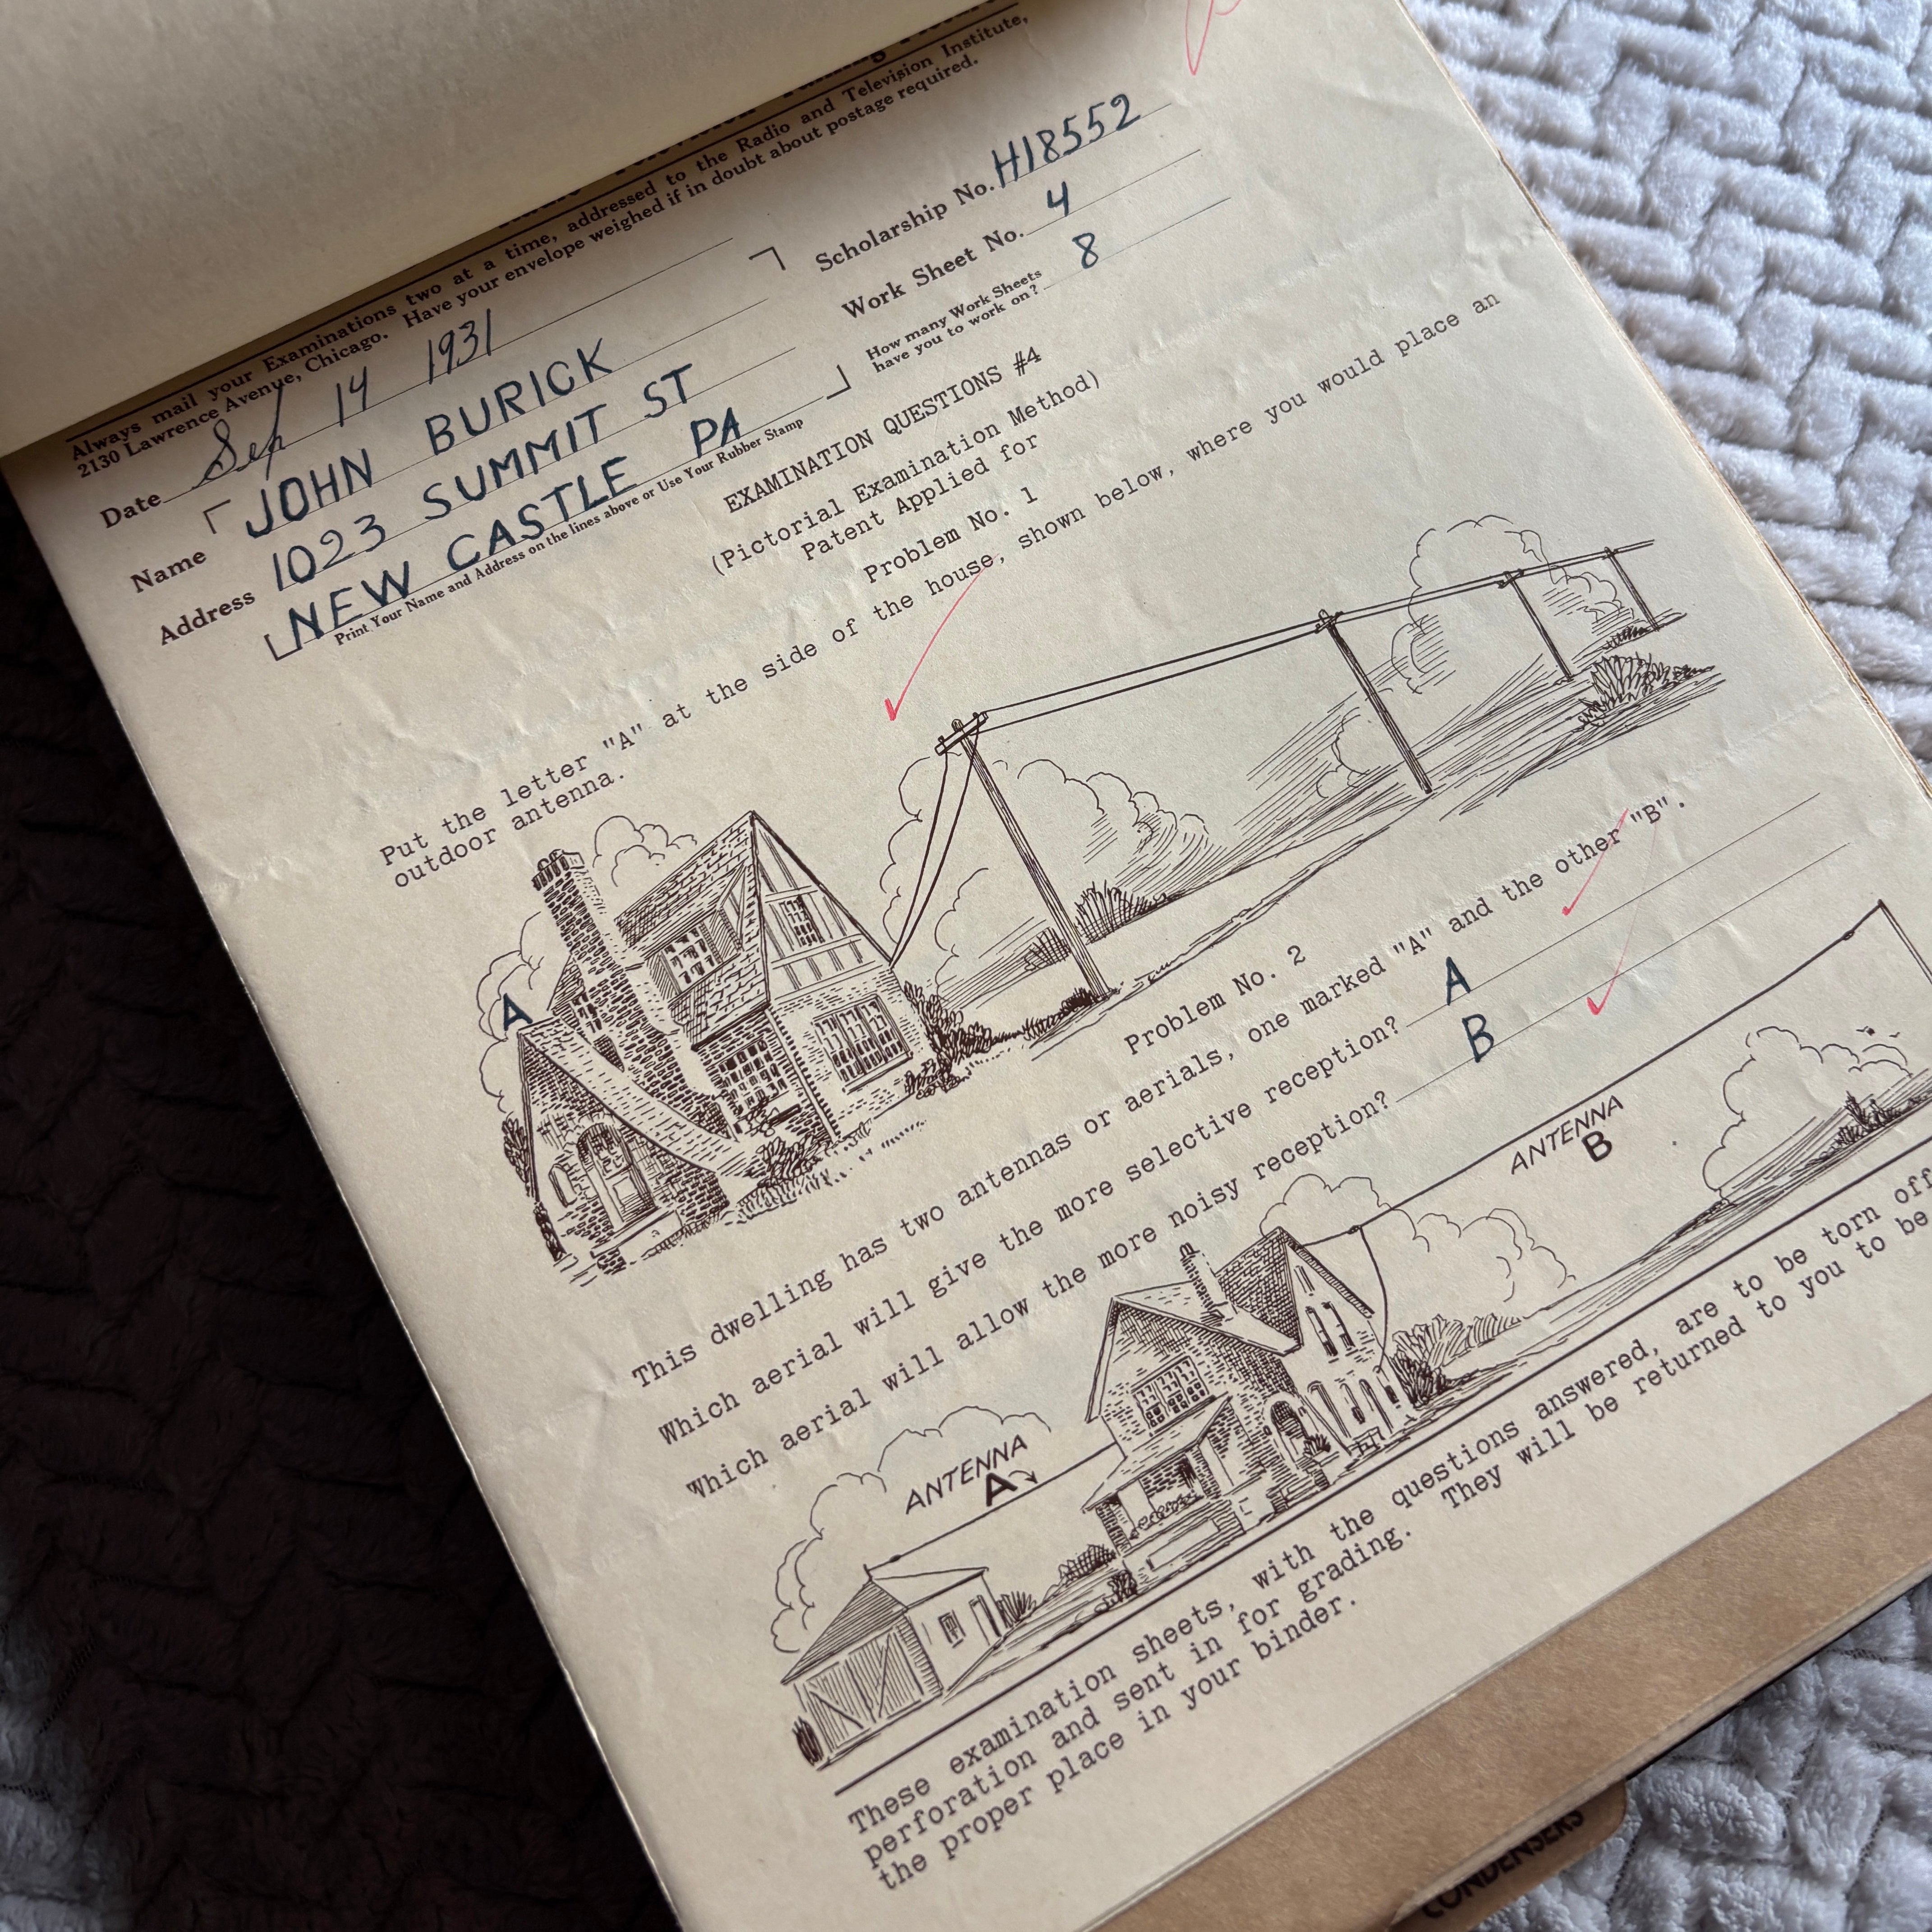 Always mail your Examinations two at a time, addressed to the Radio and Television Institute,
2130 Lawrence Avenue, Chicago. Have your envelope weighed if in doubt about postage required.
Date Sep 14 1931
Name JOHN BURICK
Address 1023 SUMMIT ST
NEW CASTLE PA
Print Your Name and Address on the lines above or Use Your Rubber Stamp
Scholarship No. H18552
Work Sheet No. 4
How many Work Sheets
have you to work on? 8
EXAMINATION QUESTIONS #4
(Pictorial Examination Method)
Patent Applied for
Problem No. 1
Put the letter "A" at the side of the house, shown below, where you would place an
outdoor antenna.
A
Problem No. 2
This dwelling has two antennas or aerials, one marked "A" and the other "B".
Which aerial will give the more selective reception? A
Which aerial will allow the more noisy reception? B
ANTENNA
B
ANTENNA
A
These examination sheets, with the questions answered, are to be torn off
perforation and sent in for grading. They will be returned to you to be
the proper place in your binder.
CONDENSERS